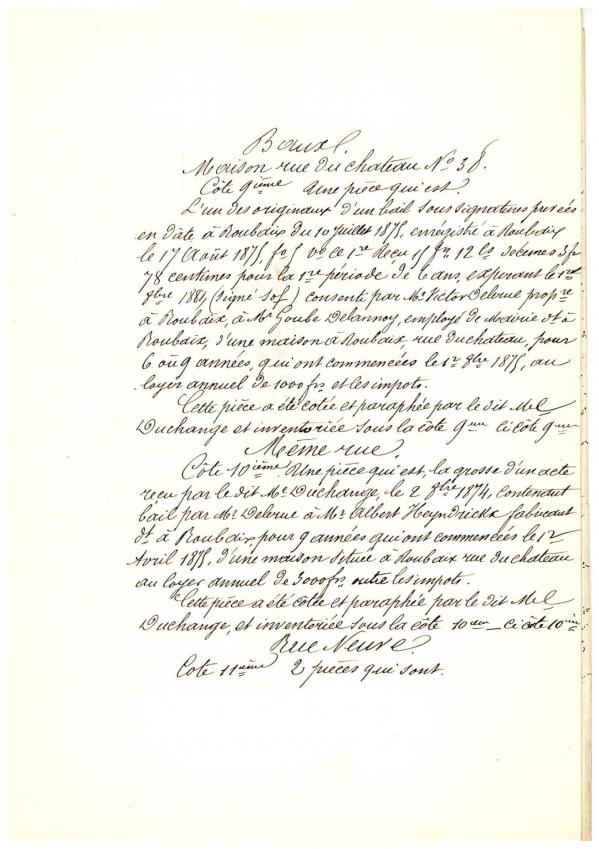 Baux.
Maison rue du chateau No 38.
Côte 9ième Une pièce qui est.
L'un des originaux d'un bail sous signatures privées
en dâte à Roubaix du 10 Juillet 1875, enregistré à Roubaix
le 17 Août 1875, fo 5 vo ce 1re Reçu 15 frs 12 Cs décimes 3 fr
78 centimes pour la 1re période de 6 ans, expirant le 1er
8bre 1881, (signé Sof) consenti par Mr Victor Delerue propre
à Roubaix, à Mr Goube Delannoy, employé de Mairie dt à
Roubaix, d'une maison à Roubaix, rue du chateau, pour
6 où 9 années, qui ont commencées le 1er 8bre 1875, au
loyer annuel de 1000 frs et les impots.
Cette pièce a été côtée et paraphée par le dit Me
Duchange et inventoriée sous la côte 9me ci côte 9me
Même rue.
Côte 10ième Une pièce qui est, la grosse d'un acte
reçu par le dit Me Duchange, le 2 8bre 1874, contenant
bail par Mr Delerue à Mr Albert Heyndrickx fabricant
dt à Roubaix pour 9 années qui ont commencées le 1er
Avril 1875, d'une maison située à Roubaix rue du chateau
au loyer annuel de 3000 frs outre les impots.
Cette pièce a été côtée et paraphée par le dit Me
Duchange, et inventoriée sous la côte 10me ci côte 10me
Rue Neuve
Cote 11ième 2 pièces qui sont.